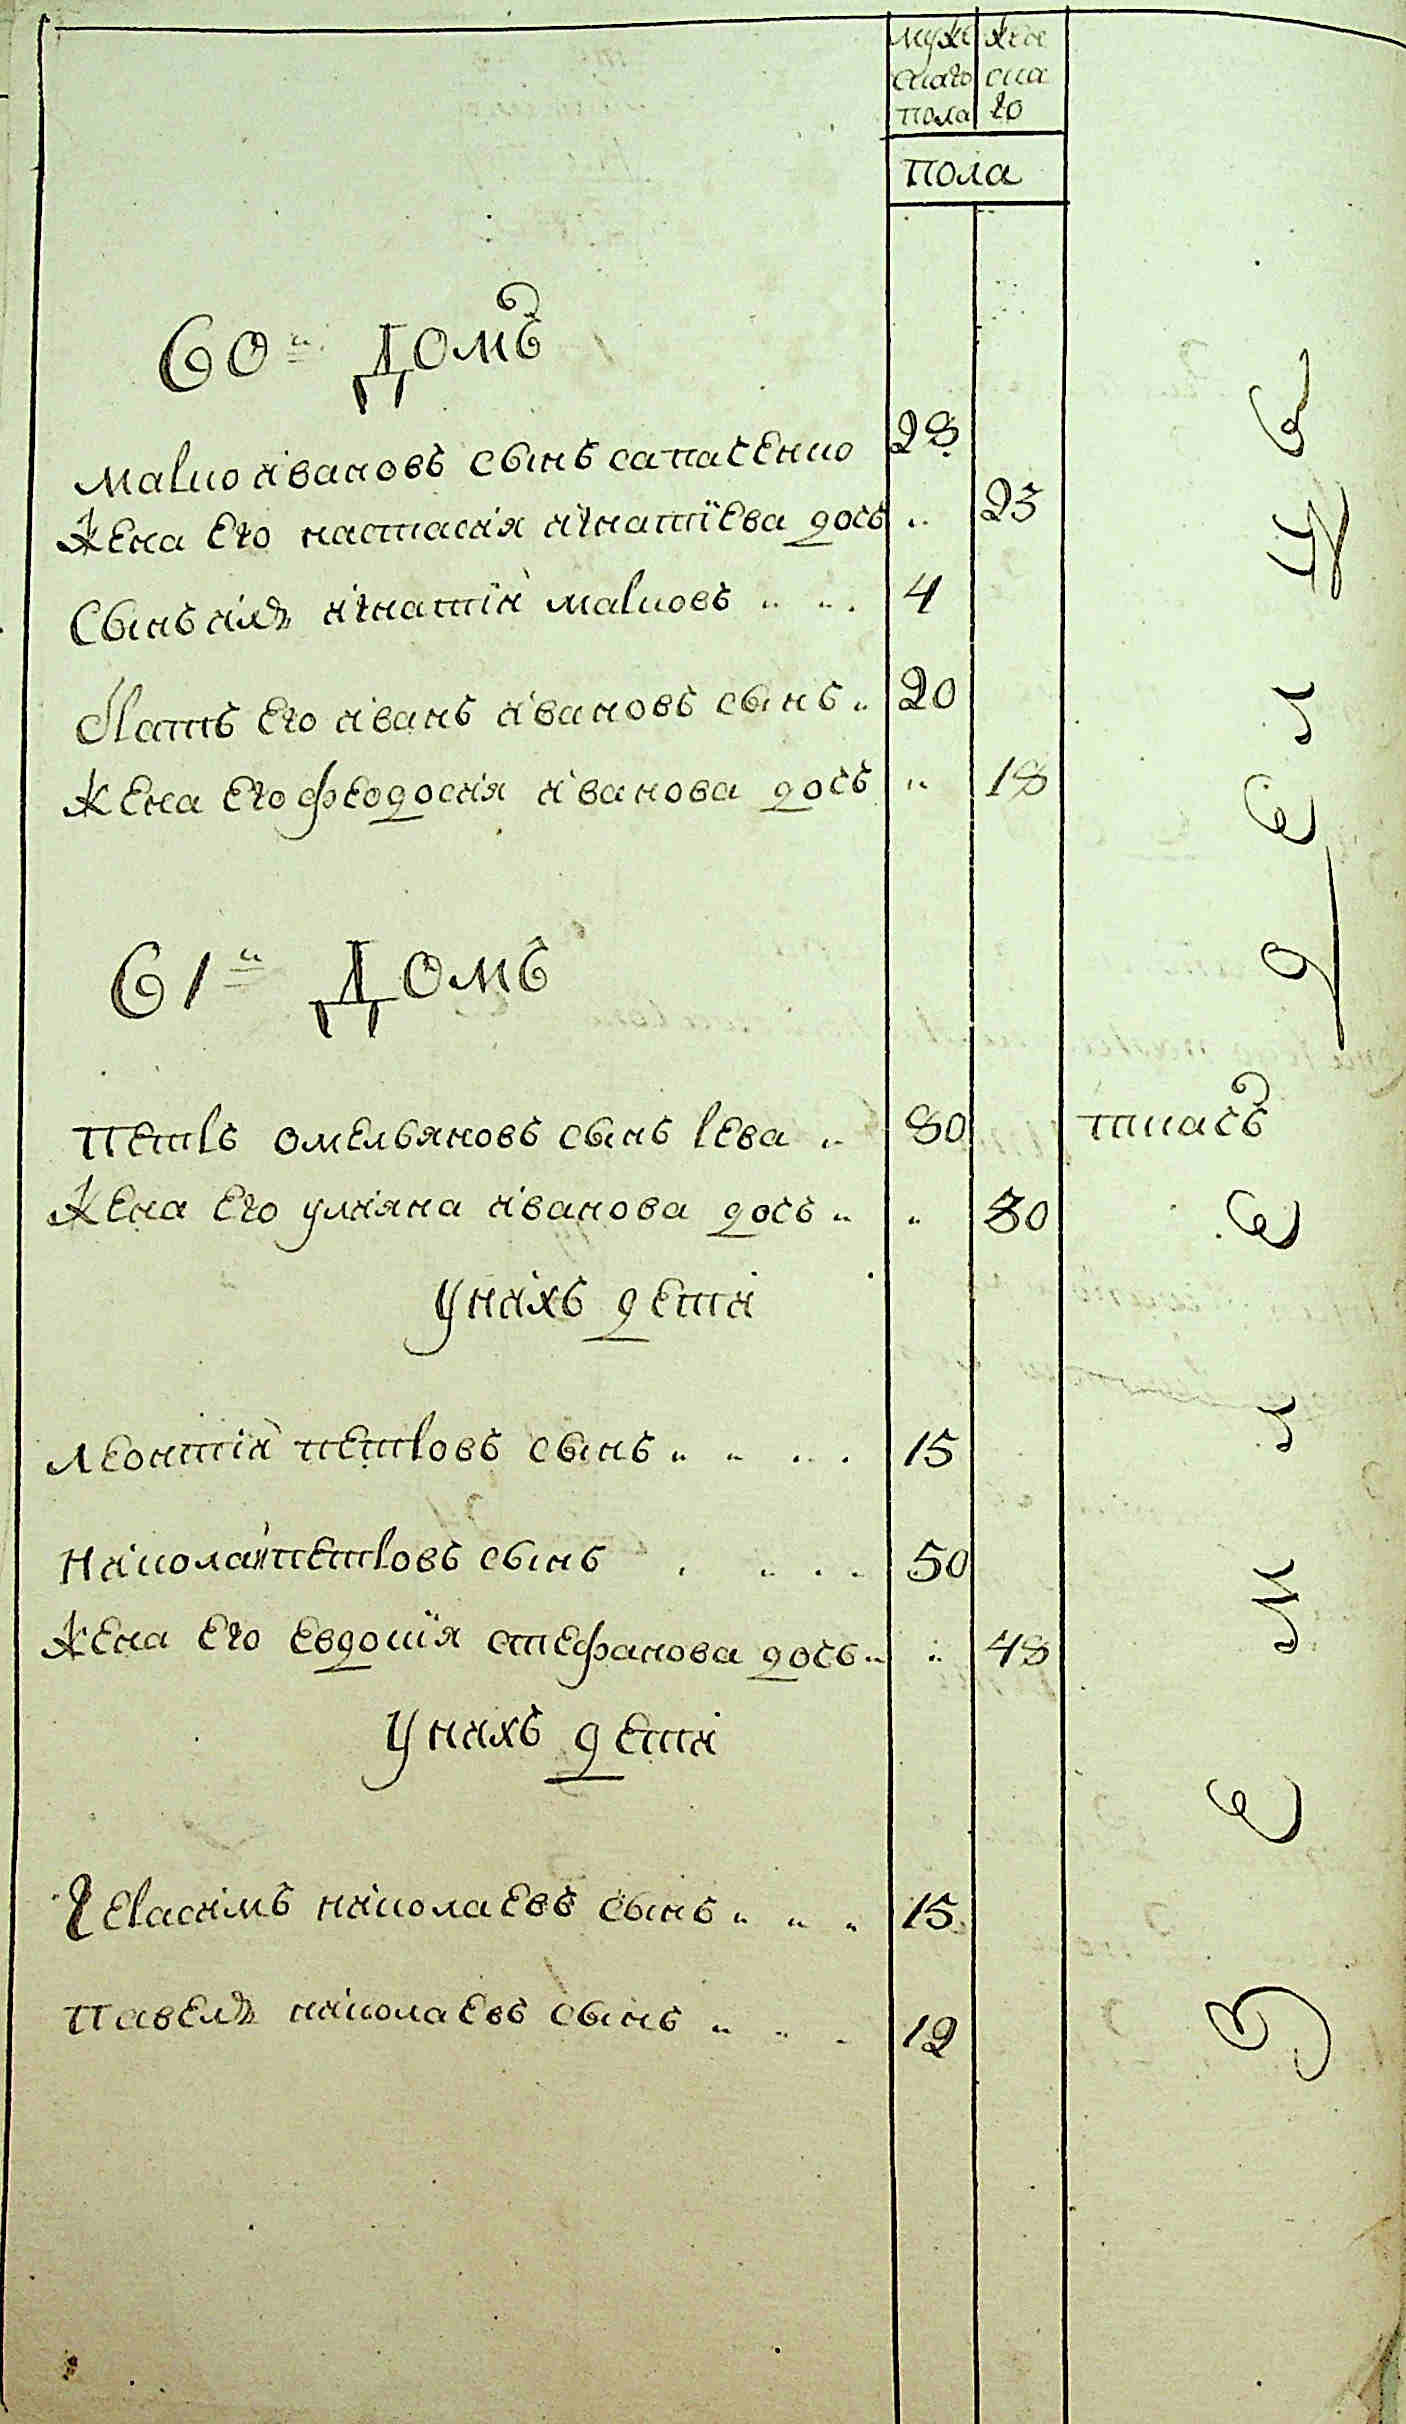 муже
скаго
пола
жен
ска
го
пола
60й домъ
марко ивановъ сынъ сапаченко 28
жена его настасия игнатїева дочь 23
сынъ ихъ игнатiй марковъ 4
братъ его иванъ ивановъ сынъ 20
жена его феодосия иванова дочь 18
61й домъ
петръ омельяновъ сынъ рева 80 ткачъ
жена его улияна иванова дочь 80
у нихъ дети
леонтiй петровъ сынъ 15
николай петровъ сынъ 50
жена его евдокїя стефанова дочь 48
у нихъ дети
герасимъ николаевъ сынъ 15
павелъ николаевъ сынъ 12
земле
делцы